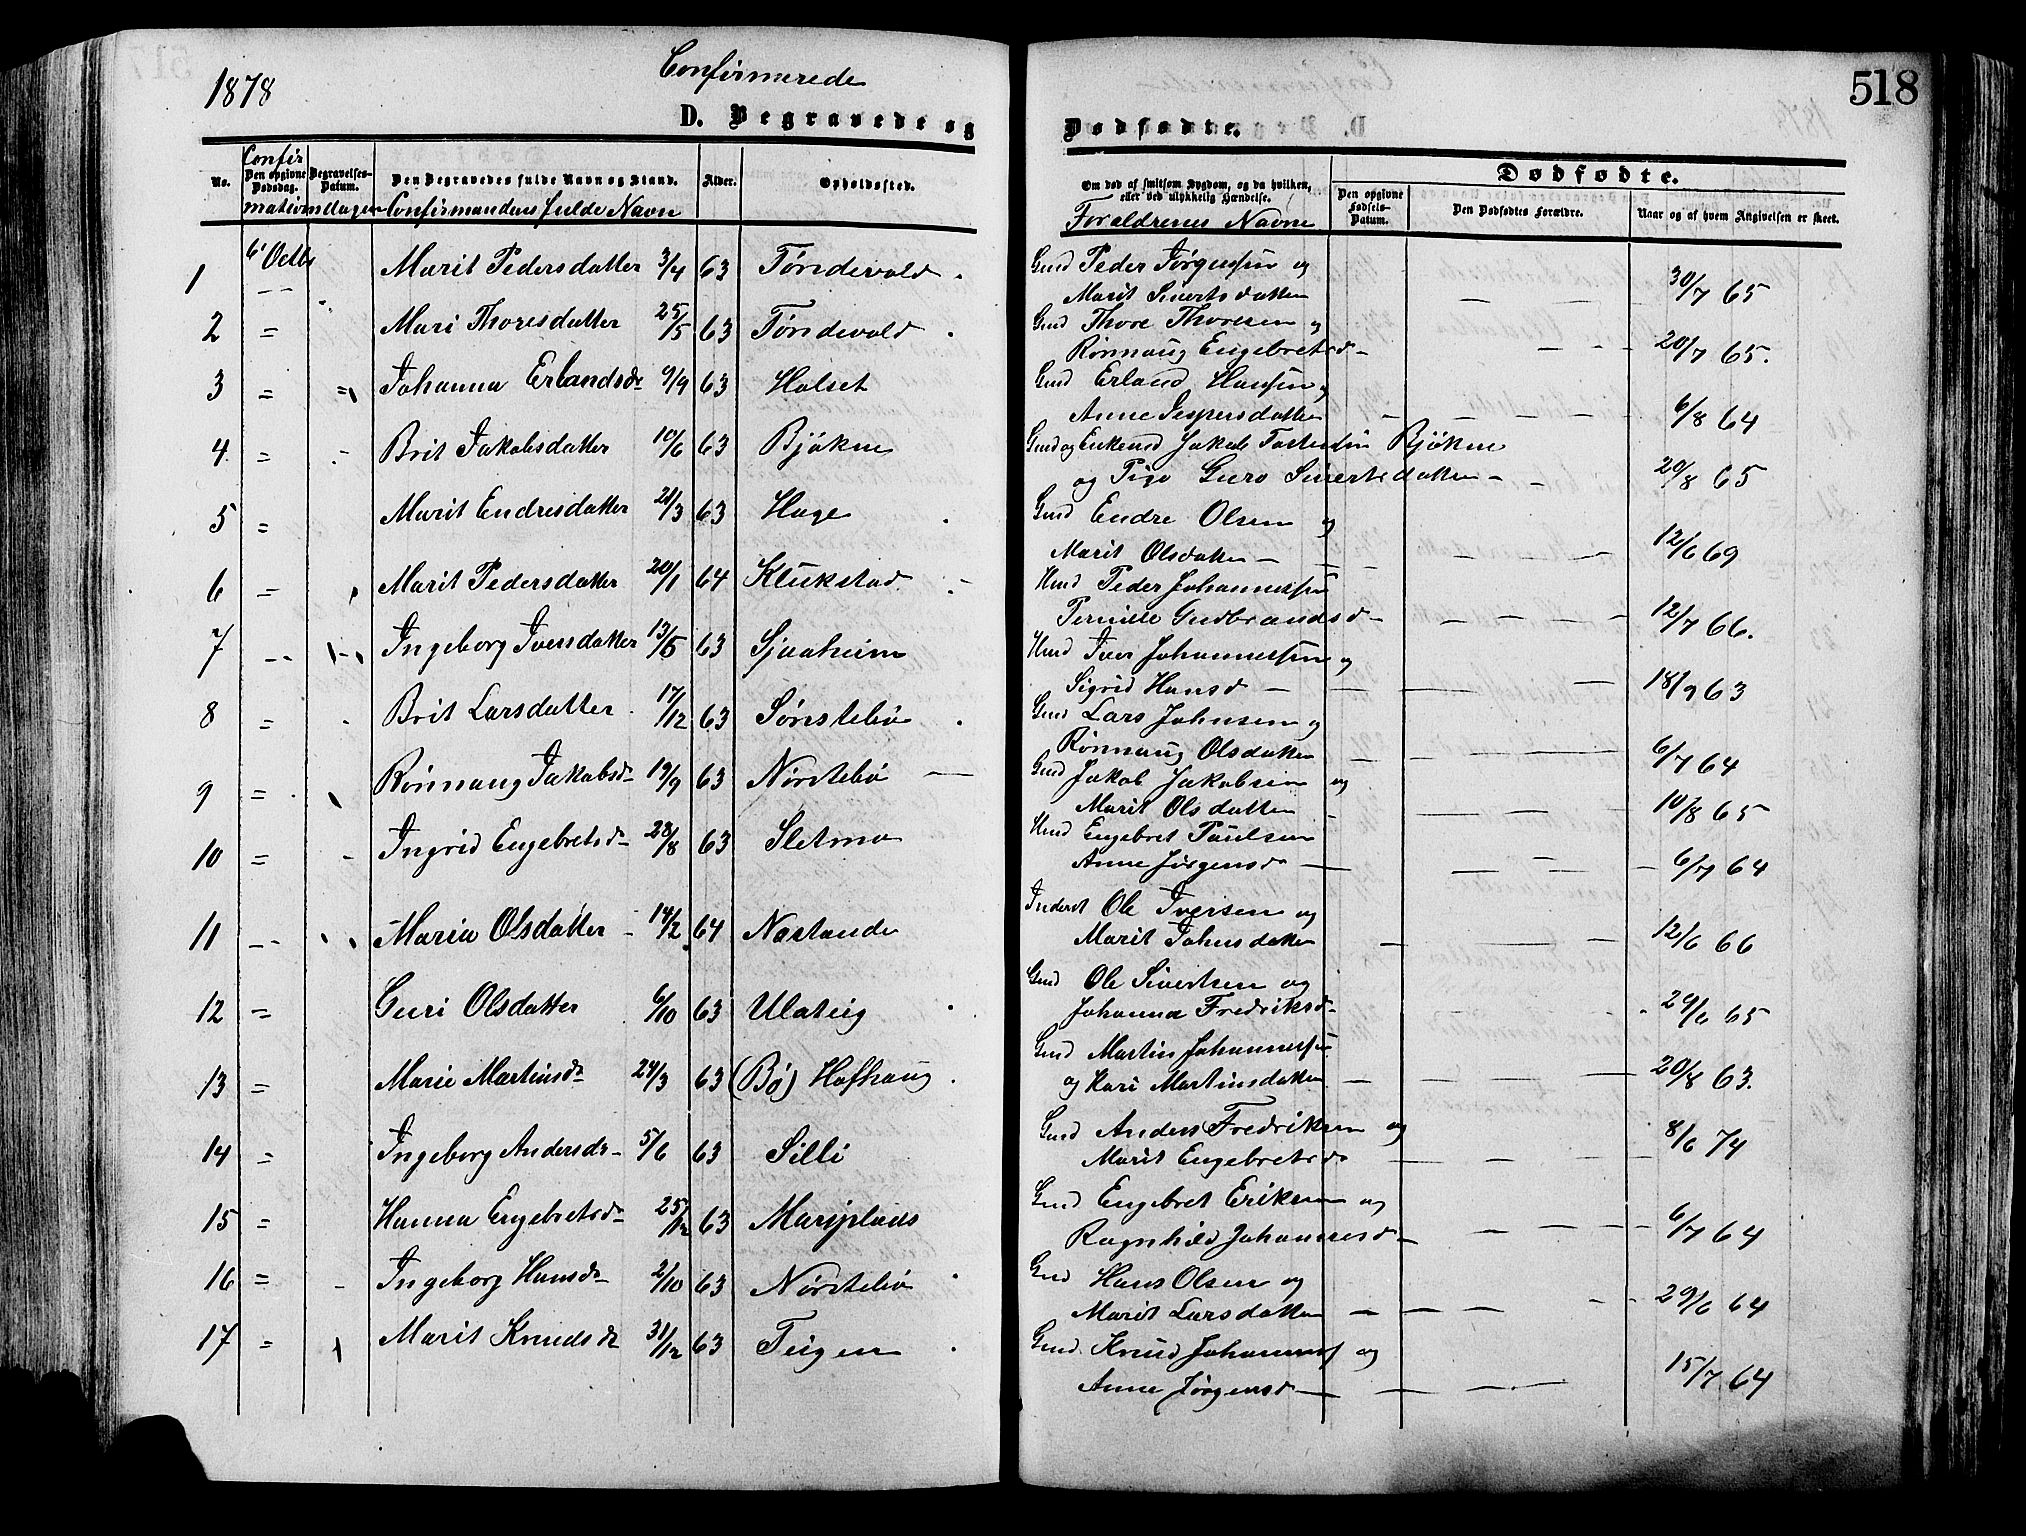 1878
Confirmerede
518
D. Begravede og
Dødfødte.
No.
Confir
Den opgivne Dødsdag.
mationsdagen
Begravelses-Datum.
Den Begravedes fulde Navn og Stand.
Confirmandens fulde Navn
Alder.
Opholdssted.
Om død af smitsom Sygdom, og da hvilken, eller ved ulykkelig Hændelse.
Forældrenes Navne
Dødfødte.
Den opgivne Fødsels-Datum.
Den Dødfødtes Forældre.
Naar og af hvem Angivelsen er skeet.
1 6' Octb Marit Pedersdatter 3/4 63 Tøndevold Gmd Peder Jørgensen og
Marit Siverts datter 30/7 65
2 = Mari Thoresdatter 25/5 63 Tøndevold Gmd Thore Thoresen og
Rønnaug Engebretsd 20/7 65.
3 = Johanna Erlandsdr 9/9 63 Holset Gmd Erland Hansen og
Anne Jespersdatter 6/8 64
4 = Brit Jakobsdatter 10/6 63 Bjøkne Gmd og Enkemd Jakob Bjøkne
og Pige Guro Sivertsdatter 20/8 65
5 = Marit Endresdatter 21/3 63 Hage Gmd Endre Olsen og
Marit Olsdatter 12/6 69
6 = Marit Pedersdatter 20/1 64 Klukstad Hmd Peder Johannessen
Pernille Gudbrandsd 12/7 66.
7 Ingeborg Iversdatter 13/5 63 Sjaaheim Hmd Iver Johannessen og
Sigrid Hansd 18/9 63
8 = Brit Larsdatter 17/12 63 Sørstebø Gmd Lars Johnsen og
Rønnaug Olsdatter 6/7 64
9 = Rønnaug Jakobsdr 19/9 63 Nørstebø Gmd Jakob Jakobsen og
Marit Olsdatter 10/8 65
10 = Ingrid Engebretsdr 28/8 63 Sletmo Hmd Engebret Paulsen
Anne Jørgensd 6/7 64
11 Maria Olsdatter 14/2 64 Nostande Inderst Ole Iversen og
Marit Johnsdatter 12/6 66
12 = Guri Olsdatter 6/10 63 Ulateig Gmd Ole Sivertsen og
Johanna Fredriksd 29/6 65
13 = Marie Martinsdr 24/3 63 (Bø) Hofhaug Gmd Martin Johannessen
og Kari Martinsdatter 20/8 63.
14 = Ingeborg Andersdr 5/6 63 Silli Gmd Anders Fredriksen og
Marit Engebretsd 8/6 74
15 = Hanna Engebretsdr 25/12 63 Mariplads Gmd Engebret Eriksen og
Ragnhild Johannesd 6/7 64
16 = Ingeborg Hansdr 2/10 63 Nørstebø Gmd Hans Olsen og
Marit Larsdatter 29/6 64
17 = Marit Knudsdr 31/12 63 Teigen Gmd Knud Johannes og
Anne Jørgensd 15/7 64